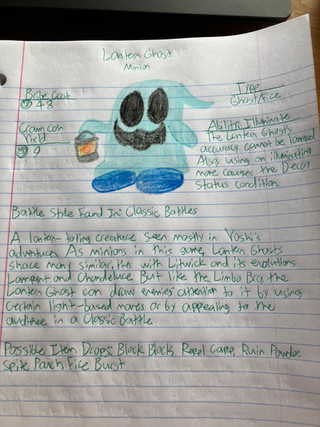 Lantern Ghost
Minion
Bribe Cost
48
Type
Ghost/Fire
Crown coin
Yield
9
Ability: Illuminate
The Lantern Ghost's
accuracy cannot be lowered
Also, using an illuminating
move causes the Decoy
Status condition.
Battle Style Found In: Classic Battles
A lantern-toting creature seen mostly in Yoshi's
adventures. As minions in this game, Lantern Ghosts
share many similarities with Litwick and its evolutions
Lampent and Chandelure. But like the Limbo Bro, the
Lantern Ghost can draw enemies' attention to it by using
certain light-based moves or by appealing to the
audience in a Classic Battle.
Possible Item Drops: Block Block, Repel Cape, Ruin Powder,
Spite Pouch, Fire Burst